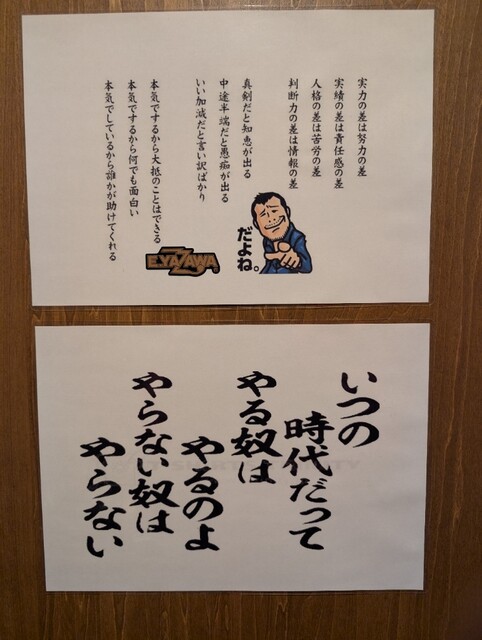 実力の差は努力の差
実績の差は責任感の差
人格の差は苦労の差
判断力の差は情報の差
真剣だと知恵が出る
中途半端だと愚痴が出る
いい加減だと言い訳ばかり
本気でするから大抵のことはできる
本気でするから何でも面白い
本気でしているから誰かが助けてくれる
だよね。
E.YAZAWA
いつの
時代だって
やる奴は
やるのよ
やらない奴は
やらない